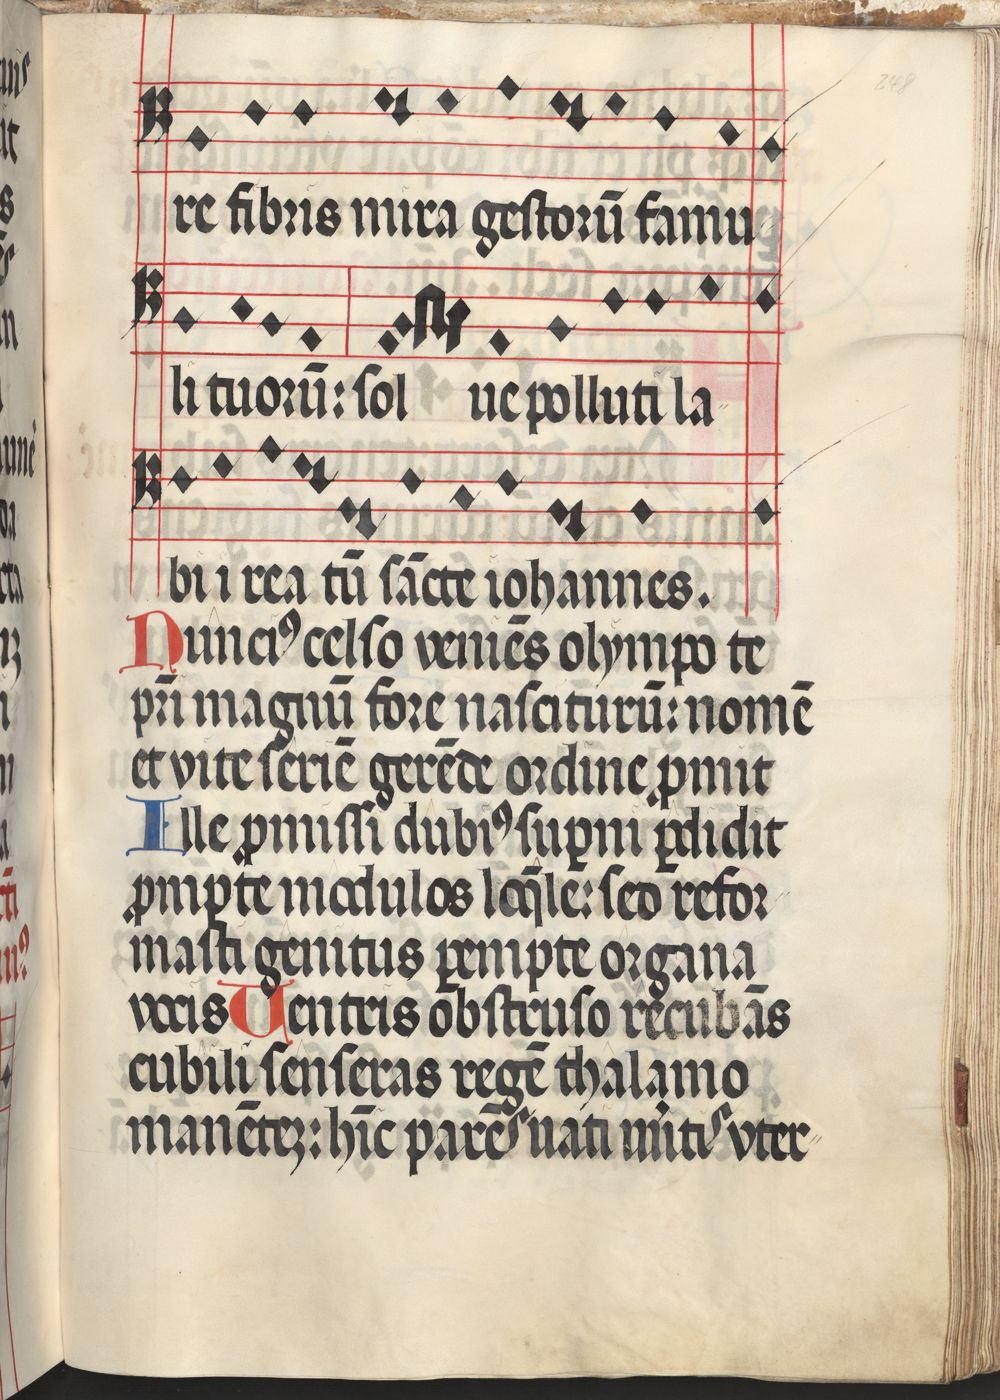 248
re fibris mira gestorū famu
li tuorū: sol ue polluti la
bi i rea tū sācte iohannes.
Nunciꝰ celso veniēs olympo te
pr̄i magnū fore nasciturū: nomē
et vite seriē gerēde ordine ꝓmit
Ille ꝓmissi dubiꝰ suꝑni ꝑdidit
ꝓmpte modulos loq̄le: sed refor
masti genitus ꝑempte organa
vocis Uentris obstruso recubās
cubili senseras regē thalamo
manētē: hīc parēs nati